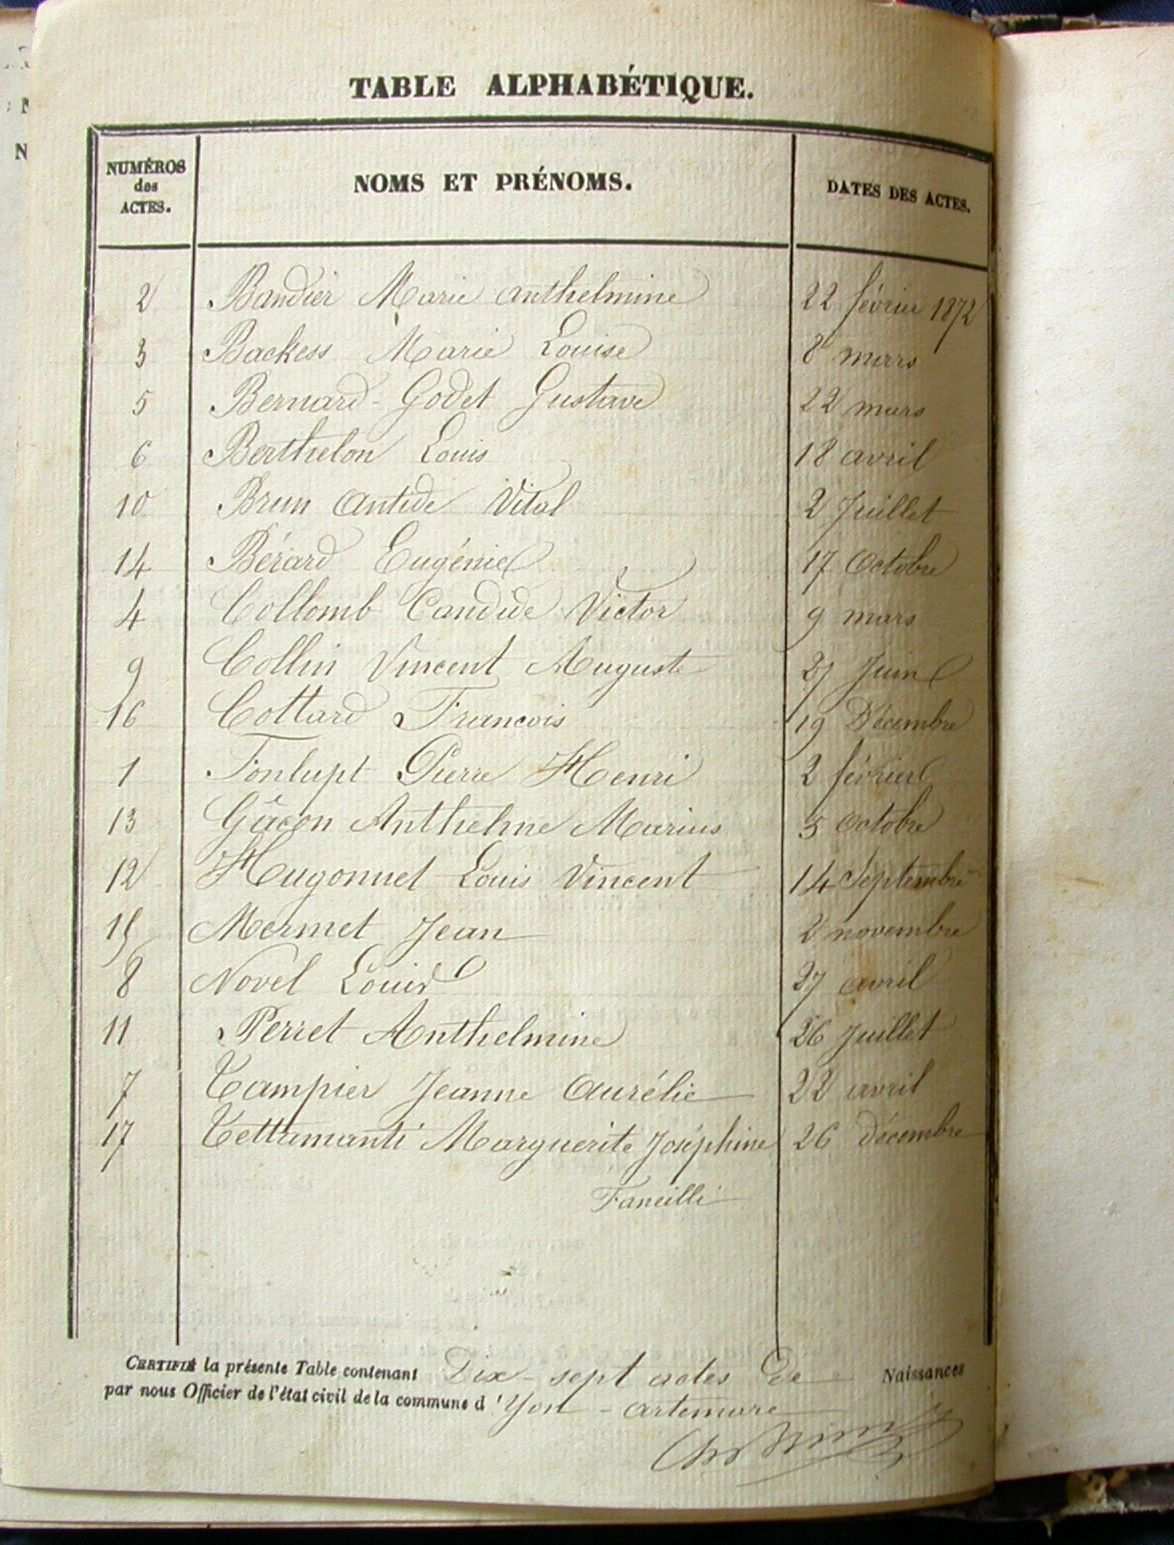 TABLE ALPHABÉTIQUE.
NUMÉROS des ACTES. NOMS ET PRÉNOMS. DATES DES ACTES.
2 Bandier Marie Anthelmine 22 février 1872
3 Backess Marie Louise 8 mars
5 Bernard-Godet Gustave 22 mars
6 Berthelon Louis 18 avril
10 Brun Antide Vital 2 Juillet
14 Bérard Eugénie 17 Octobre
4 Collomb Candide Victor 9 mars
9 Collin Vincent Auguste 27 Juin
16 Cottard Francois 19 Décembre
1 Fonlupt Pierre Henri 2 février
13 Gâcon Anthelme Marius 5 Octobre
12 Hugonnet Louis Vincent 14 Septembre
15 Mermet Jean 2 novembre
8 Novel Louis 27 avril
11 Perret Anthelmine 26 Juillet
7 Tampier Jeanne Aurélie 22 avril
17 Tettamanti Marguerite Joséphine 26 décembre
CERTIFIÉ la présente Table contenant Dix-sept actes de Naissances
par nous Officier de l'état civil de la commune d'Yon-artemare